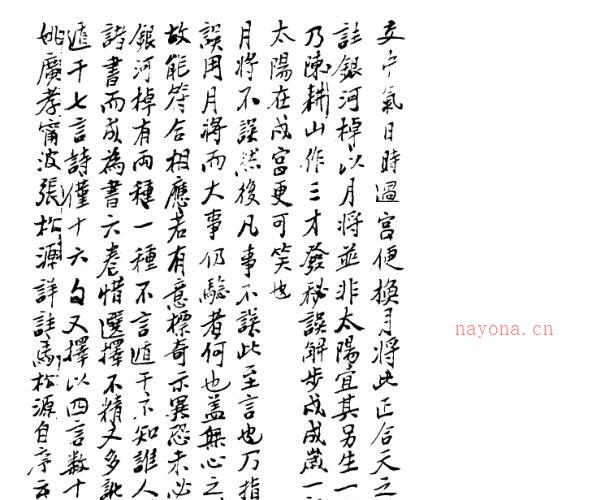 交中氣日時過宮便換月將此正合天之
註銀河棹以月將並非太陽宜其另生一
乃陳耕山作三才發秘誤解步戌成歲一
太陽在戌宮更可笑也
月將不誤然後凡事不誤此至言也乃指
誤用月將而大事仍驗者何也蓋無心之
故能符合相應若有意標奇示異恐未必
銀河棹有兩種一種不言遁干不知誰人
諸書而成為書六卷惜選擇不精又多訛
遁干七言詩僅十六句又擇以四言數十
姚廣孝甯波張松源詳註馬松源自序云
nayona.cn